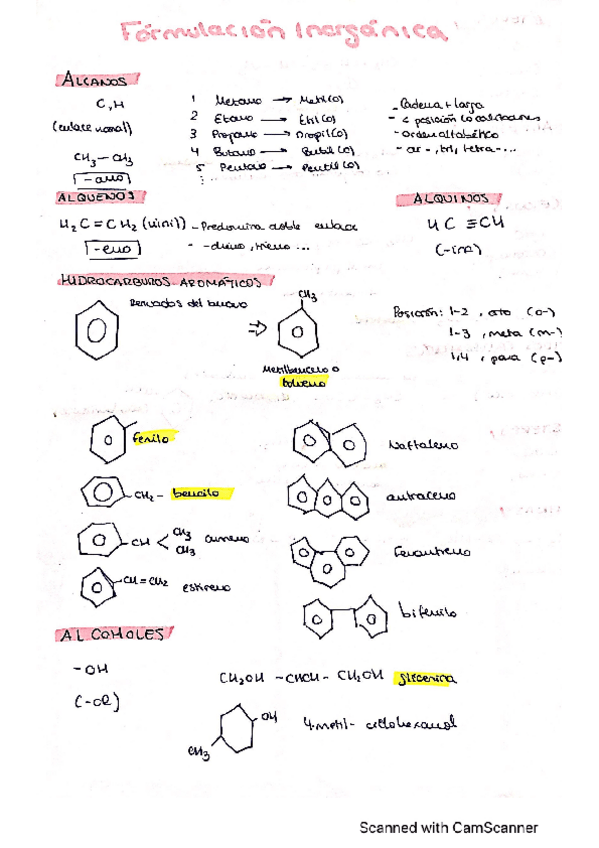 Fórmulación Inorgánica
ALCANOS
C, H
(enlace normal)
CH3 — CH3
-ano
1 Metano → Metil(o)
2 Etano → Etil(o)
3 Propano → Propil(o)
4 Butano → Butil(o)
5 Pentano → Pentil(o)
- Cadena + larga
- < posición
- orden alfabético
- , tri, tetra-...
ALQUENOS
H2C = CH2 (vinil)
-eno
- Predomina doble enlace
- -dieno, trieno ...
ALQUINOS
HC ≡ CH
(-ino)
HIDROCARBUROS AROMÁTICOS
Derivados del benceno
⇒
CH3
Metilbenceno o
tolueno
Posición: 1-2, orto (o-)
1-3, meta (m-)
1,4, para (p-)
fenilo
Naftaleno
-CH2- bencilo
antraceno
-CH < CH3 CH3 cumeno
Fenantreno
-CH=CH2 estireno
bifenilo
ALCOHOLES
-OH
(-ol)
CH2OH -CHOH- CH2OH glicerina
OH
CH3
4-metil-ciclohexanol
Scanned with CamScanner